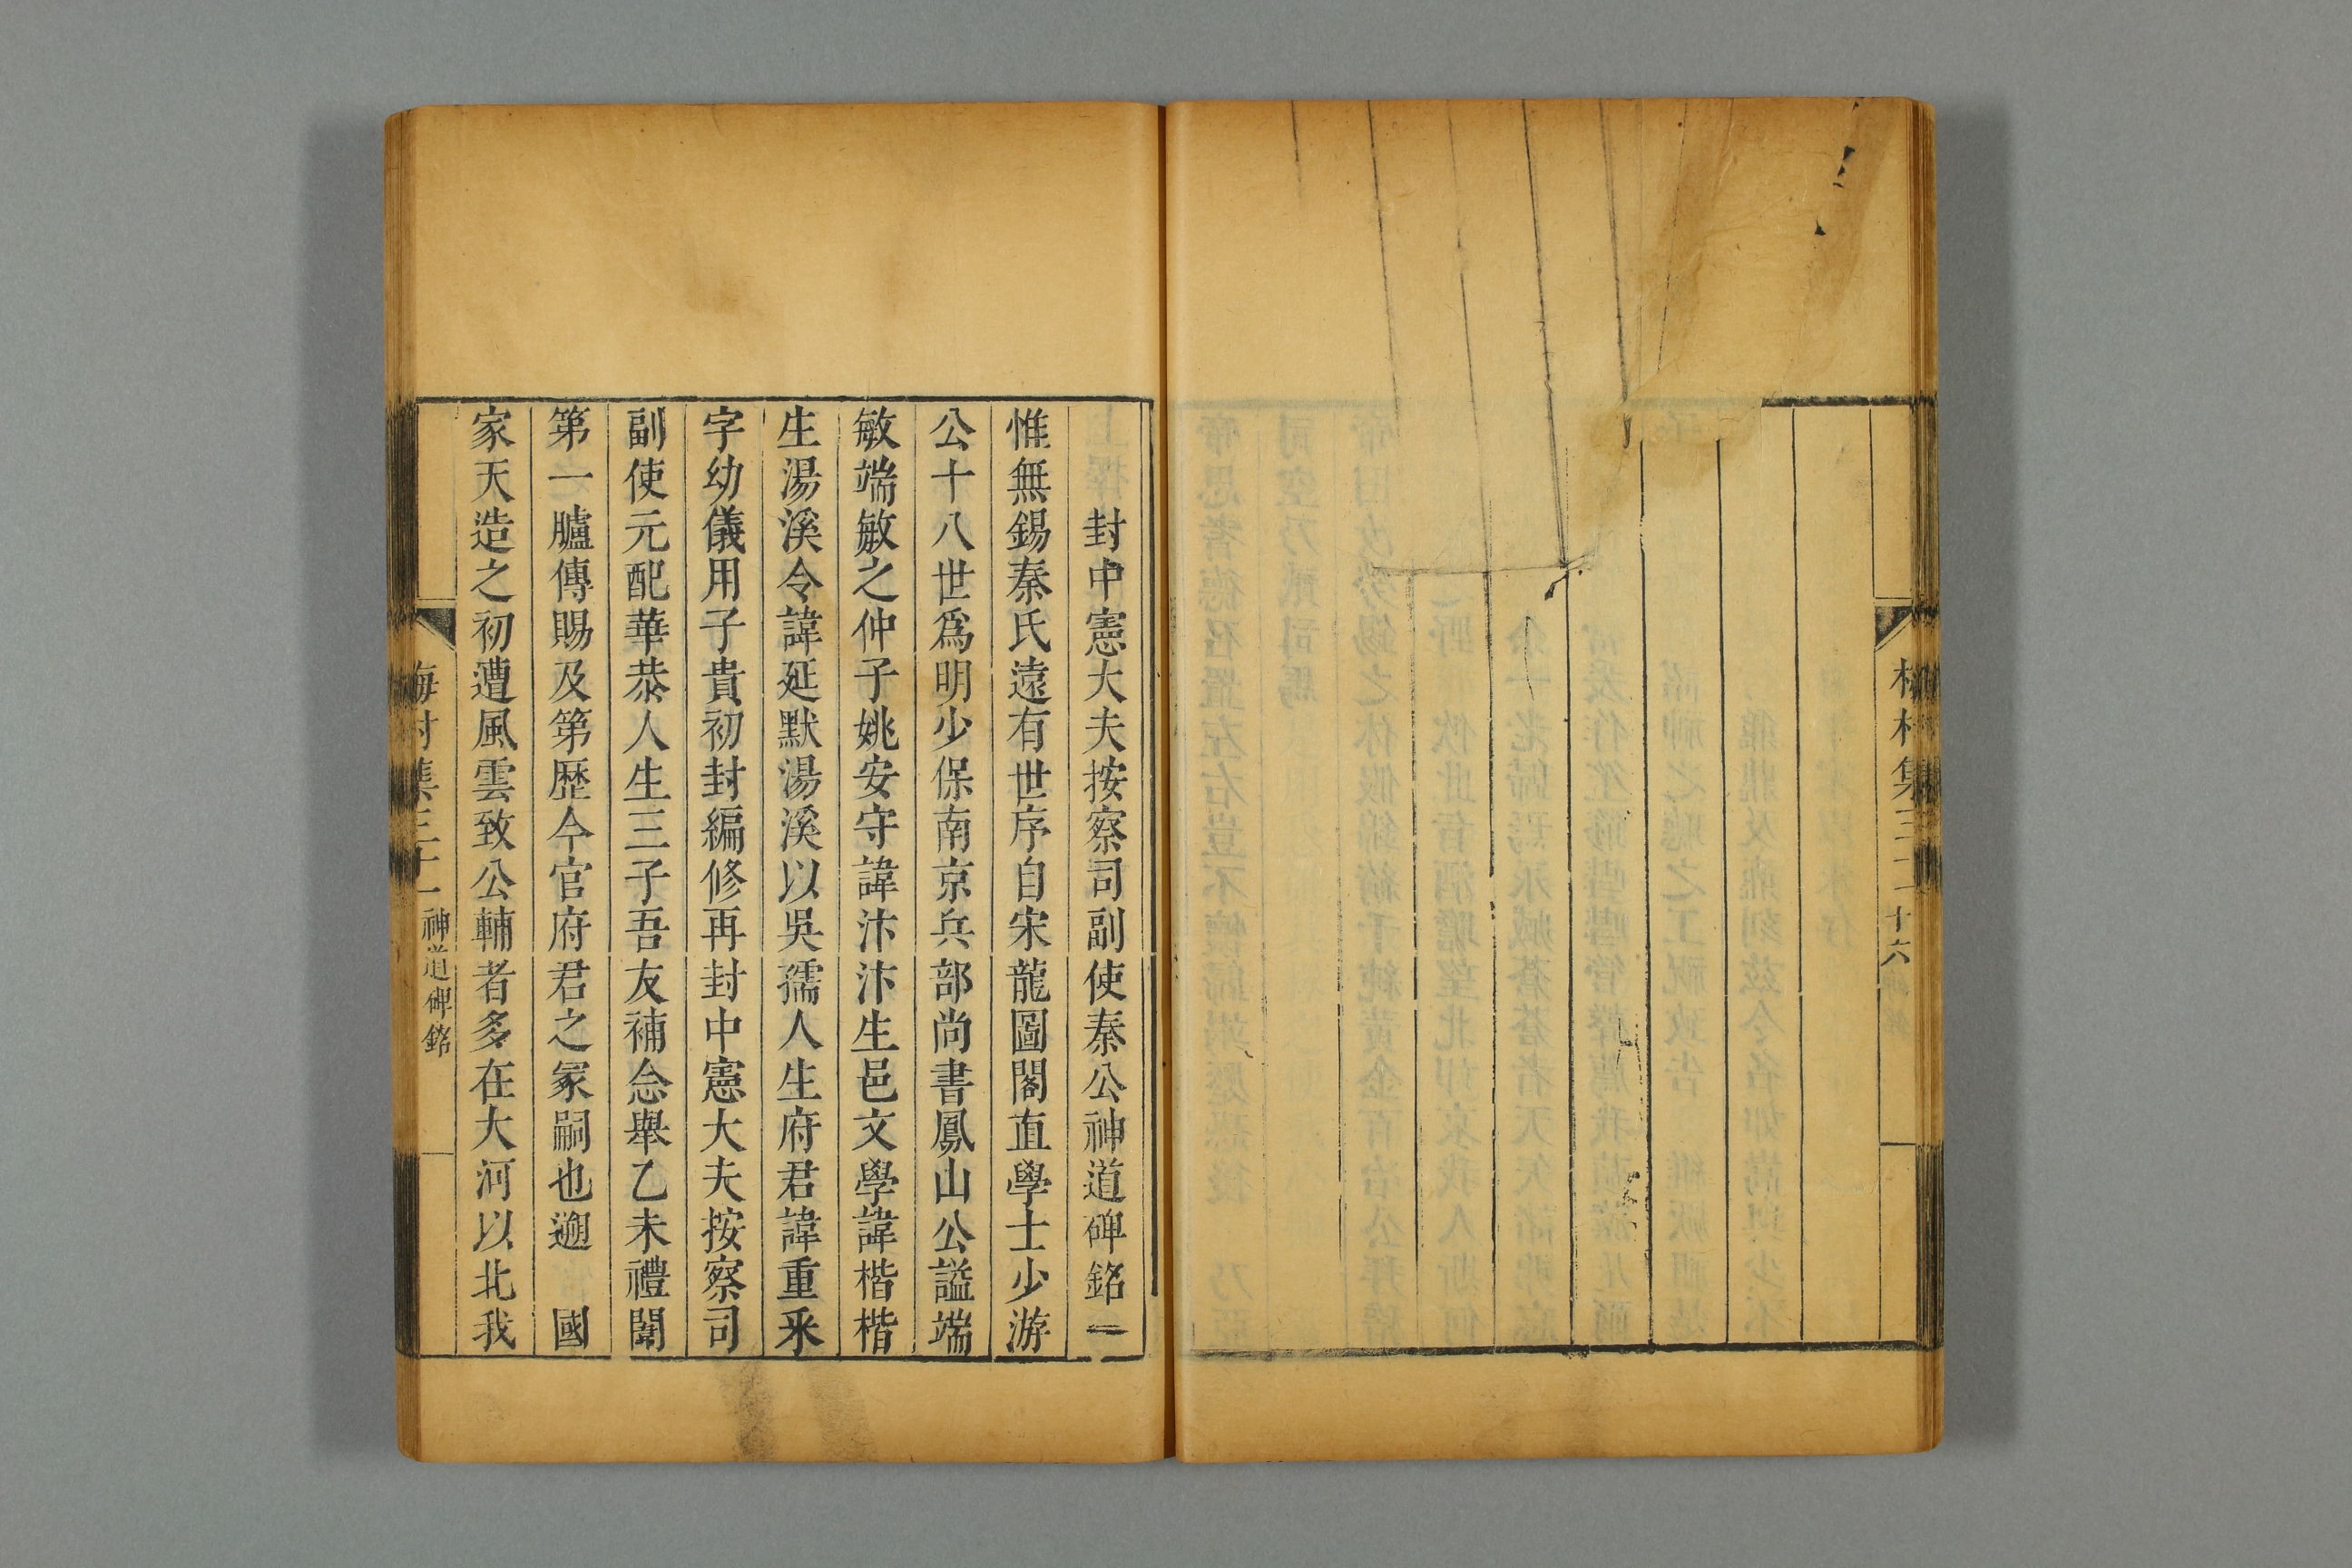 梅村集三十
十六
封中憲大夫按察司副使秦公神道碑銘
惟無錫秦氏遠有世序自宋龍圖閣直學士少游
公十八世爲明少保南京兵部尚書鳳山公謚端
敏端敏之仲子姚安守諱汴汴生邑文學諱楷楷
生湯溪令諱延默湯溪以吳孺人生府君諱重釆
字幼儀用子貴初封編修再封中憲大夫按察司
副使元配華恭人生三子吾友補念舉乙未禮闈
第一臚傳賜及第歷今官府君之冢嗣也遡　國
家天造之初遭風雲致公輔者多在大河以北我
梅村集三十一 神道碑銘